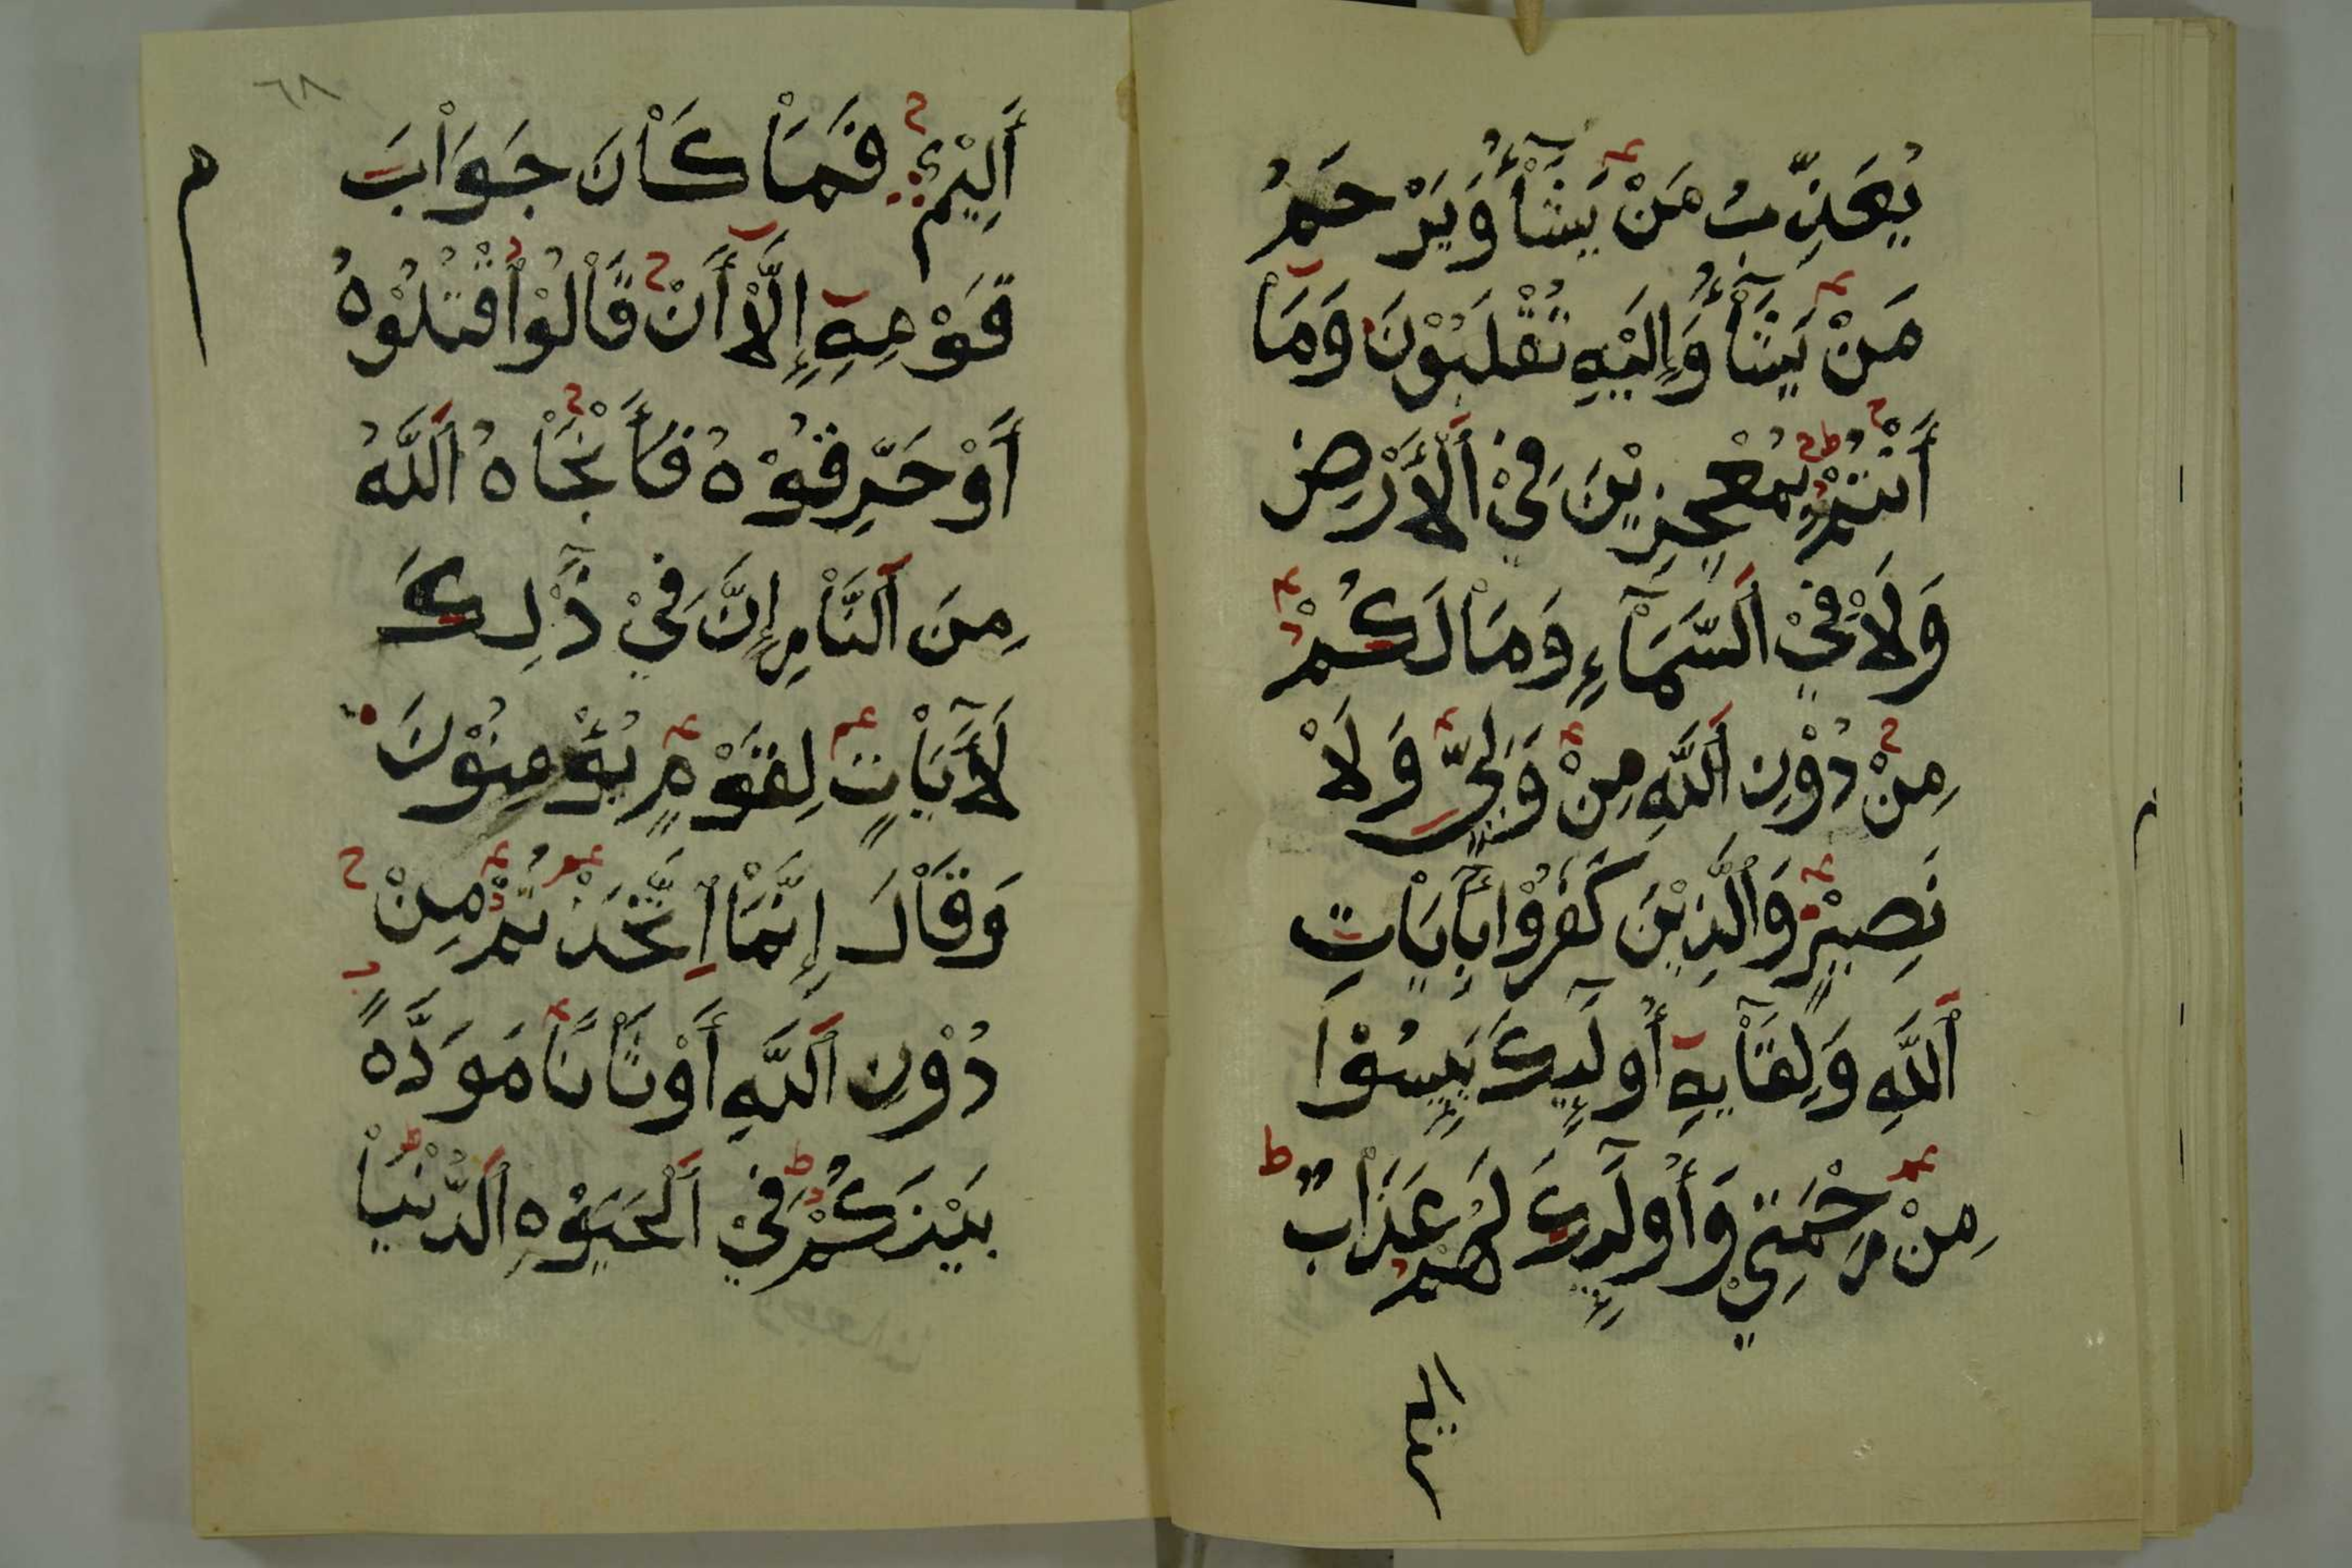 يُعَذِّبُ مَنْ يَشَآءُ وَيَرْحَمُ
مَنْ يَشَآءُ وَإِلَيْهِ تُقْلَبُوْنَ وَمَاْ
أَنْتُمْ بِمُعْجِزِيْنَ فِيْ اَلْأَرْضِ
وَلَاْ فِيْ اَلسَّمَآءِ وَمَاْ لَكُمْ
مِنْ دُوْنِ اَللَّهِ مِنْ وَلِيٍّ وَلَاْ
نَصِيْرٍ وَاَلَّذِيْنَ كَفَرُوْا بِأَيَاْتِ
اَللَّهِ وَلِقَاْيِهِ أُولَٓيِكَ يَيِسُوْا
مِنْ رَحْمَتِيْ وَأُولَٓيِكَ لَهُمْ عَذَاْبٌ
أليم
٦٨
أَلِيْمٌ فَمَاْ كَاْنَ جَوَاْبَ
قَوْمِهِ إِلَّاْ أَنْ قَاْلُوْا اُقْتُلُوْهُ
أَوْ حَرِّقُوْهُ فَأَنْجَاْهُ اَللَّهُ
مِنَ اَلنَّاْرِ إِنَّ فِيْ ذَٓلِكَ
لَأَيَاْتٍ لِقَوْمٍ يُؤْمِنُوْنَ
وَقَاْلَ إِنَّمَاْ اِتَّخَذْتُمْ مِنْ
دُوْنِ اَللَّهِ أَوْثَاْنَاً مَوَدَّةً
بَيْنَكُمْ فِيْ اَلْحَيَوٰهِ اَلدُّنْيَاْ
م